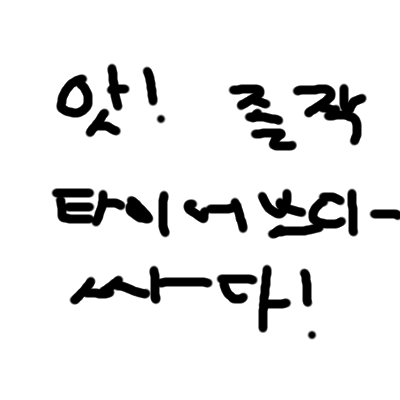 앗! 졸작
타이어보다
싸다!